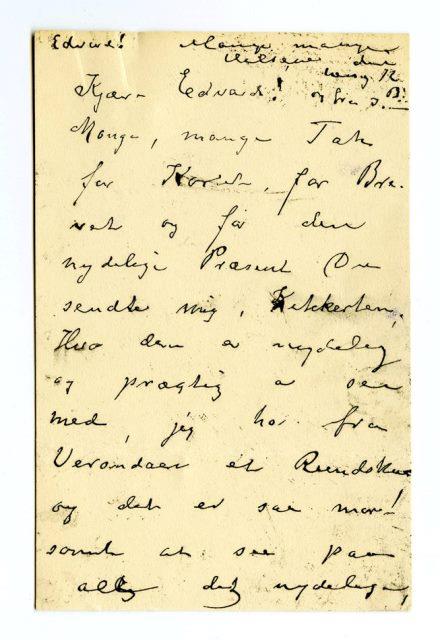 Edvard! Mange mange
Hilsener den
og fra J. B.
Kjære Edvard!
Mange, mange Tak
for Kortet, for Bre-
vet og for den
nydelige Præsent Du
sendte mig, Kikkerten,
Hvor den er nydelig
og prægtig a see
med, jeg har fra
Verandaen et Rundskue
og det er saa mor-
somt at see paa
alle det nydelige,